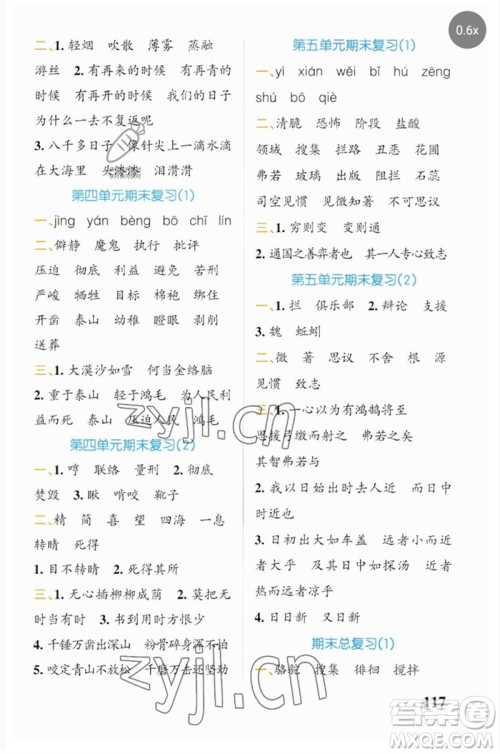 0.6x
二、1. 轻烟 吹散 薄雾 蒸融
游丝 2. 有再来的时候 有再青的
时候 有再开的时候 我们的日子
为什么一去不复返呢
3. 八千多日子 像针尖上一滴水滴
在大海里 头涔涔 泪潸潸
第四单元期末复习(1)
一、jìng yán bèng bō chī lín
二、僻静 魔鬼 执行 批评
压迫 彻底 利益 避免 剥削
严峻 牺牲 目标 棉袍 绑住
开凿 泰山 幼稚 瞪眼 剥削
送葬
三、1. 大漠沙如雪 何当金络脑
2. 重于泰山 轻于鸿毛 为人民利
益而死 压迫人民 鸿毛
第四单元期末复习(2)
一、1. 哼 联络 量刑 2. 彻底
焚毁 3. 瞅 啃咬 靴子
二、精 简 喜 望 四海 一息
转睛 死得
1. 目不转睛 2. 死得其所
三、1. 无心插柳柳成荫 2. 我自无
时当有时 3. 书到用时方恨少
4. 千锤万凿出深山 粉骨碎身浑不怕
5. 咬定青山不放松 千磨万击还坚劲
第五单元期末复习(1)
一、yì xián wěi bǐ hú zēng
shú bō qiè
二、清脆 恐怖 阶段 盐酸
领域 搜集 拦路 思议 花园
弗若 玻璃 反馈 阻拦 石蕊
司空见惯 见微知著 不可思议
三、1. 穷则变 变则通
2. 通国之善弈者也 一人专心致志
第五单元期末复习(2)
一、1. 拦 俱乐部 2. 辩论 支援
3. 魏 蚯蚓
二、微 著 思议 不舍 根 源
见惯 思议
三、1. 一心以为有鸿鹄将至
思援弓缴而射之 弗若之矣
其智弗若与
2. 我以日始出时去人近 日中
时远也
3. 日初出大如车盖 日中则如
盘盂 远者小而近者大 日中
近者大乎 及其日中如探汤
远者凉乎
4. 日日新 日日新
期末总复习(1)
一、骆驼 搜集 徘徊 搅拌
117
zyjl.cn
zyjl.cn
答案圈
MXQE.COM